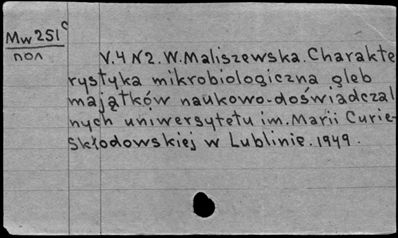 Mw251c
пол
V.4 N2. W. Maliszewska. Charakte
rystyka mikrobiologiczna gleb
majątków naukowo-doświadczal
nych uniwersytetu im. Marii Curie-
Skłodowskiej w Lublinie. 1949.